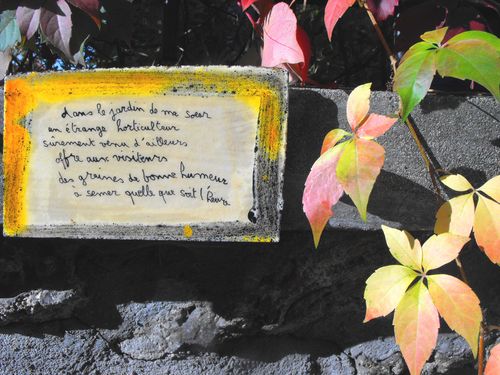 dans le jardin de ma soeur
en étrange horticulteur
sûrement venu d'ailleurs
offre aux visiteurs
des graines de bonne humeur
à semer quelle que soit l'heure